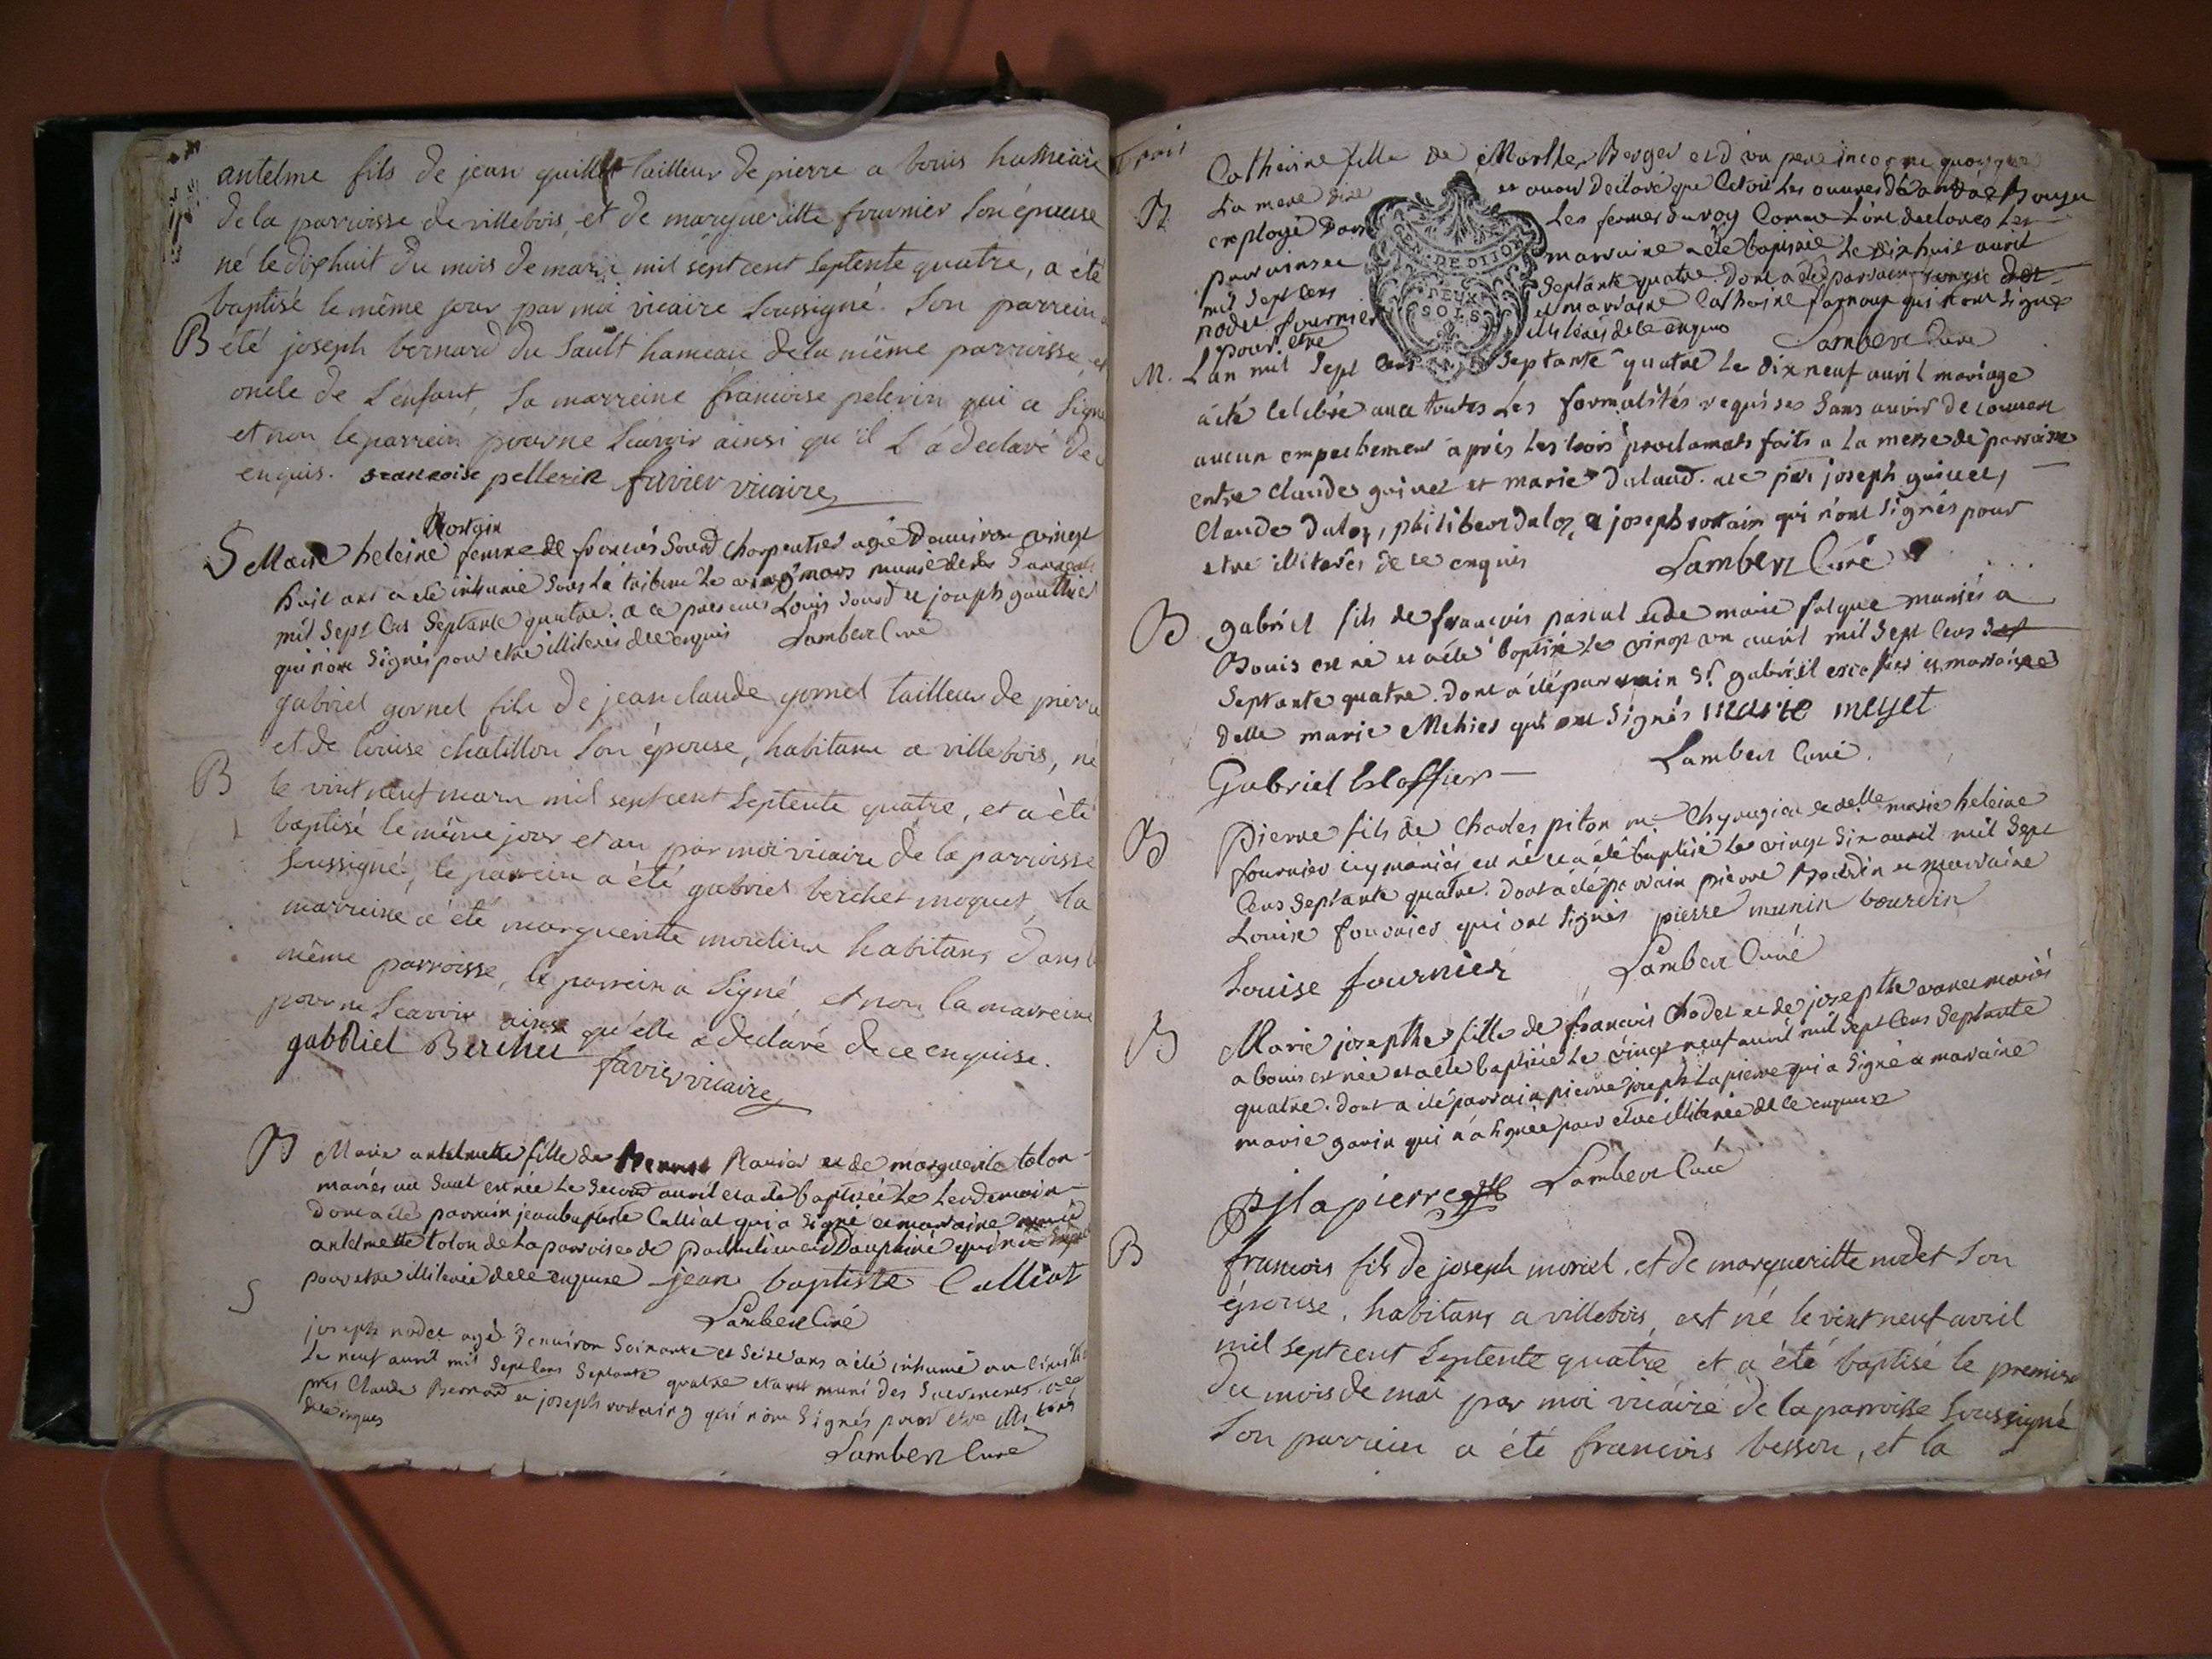 antelme fils de jean quillot tailleur de pierre a bouis hameau
de la parroisse de villebois, et de marguerite fournier son épouse
né le dixhuit du mois de mars mil sept cent septente quatre, a été
baptisé le même jour par moi vicaire soussigné. Son parrein a
B été joseph bernard du Sault hameau de la même parroisse, et
oncle de l'enfant, Sa marreine francoise pelerin qui a signé
et non le parrein pour ne scavoir ainsi qu'il l'a declaré de
enquis. francoise pellerin favier vicaire
Rostain
S Marie heleine femme de francois Sourd charpentier agée d'environ vingt
huit ans a été inhumée sous la tribune le mars munie de ses Sacremens
mil sept cens septante quatre. a ce presens Louis Sourd et joseph gauthier
qui n'ont signés pour etre illiterés de ce enquis Lambert Curé
gabriel gornel fils de jean claude gornel tailleur de pierre
et de louise chatillon son épouse, habitans a villebois, né
B le vint neuf mars mil sept cent septente quatre, et a été
baptisé le même jour et an par moi vicaire de la parroisse
soussigné, le parrein a été gabriel berchet moquet, la
marreine a été marguerite moulin habitans dans la
même parroisse, le parrein a signé et non la marreine
pour ne scavoir ainsi qu'elle a declaré de ce enquise.
gabbriel Berchet
favier vicaire
B Marie antelmette fille de et de marguerite tolon
mariés au Sault est née le second avril et a été baptisée le lendemain
dont a été parrain jean baptiste Calliat qui a signé et marraine marie
antelmette tolon de la parroisse de Dauphiné qui n'a signé
pour etre illiterée de ce enquise jean baptiste Calliat
Lambert Curé
S
joseph nodet agé d'environ soixante et seize ans a été inhumé au cimetiere
le neuf avril mil sept cens septante quatre etant muni des Sacremens
pres Claude Bernard et joseph rostaing qui n'ont signés pour etre illiterés
de ce enquis
Lambert Curé
B Catherine fille de Marthe Berger et d'un pere inconnu quoyque
La mere dise et avoir declaré que c'etoit les œuvres d'
employé dans les fermes du roy comme l'ont declarés les
parrain et marraine a été baptisée le dix huit avril
mil sept cens septante quatre. dont a été parrain
nodet fournier et marraine Catherine qui n'ont signés
pour etre illiterés de ce enquis Lambert Curé
GEN. DE DIJON
DEUX
SOLS
M. L'an mil sept cens septante quatre le dix neuf avril mariage
a été celebré avec toutes les formalités requises sans avoir decouvert
aucun empechement après les trois proclamats faits a la messe de parroisse
entre claude guinet et marie dulaud. joseph guinet,
Claude daloz, philibert daloz, et joseph rostain qui n'ont signés pour
etre illiterés de ce enquis Lambert Curé
B gabriel fils de francois pascal et de marie falque mariés a
Bouis est né et a été baptisé le vingt un avril mil sept cens
septante quatre. dont a été parrain Sr. gabriel escoffier et marraine
delle marie Mehier qui ont signés marie meyet
Gabriel Escoffier Lambert Curé.
B Pierre fils de charles piton me chyrugien et delle marie heleine
fournier icy mariés est né et a été baptisé le vingt six avril mil sept
cens septante quatre. dont a été parrain pierre Bourdin et marraine
Louise fournier qui ont signés pierre munin bourdin
Louise fournier Lambert Curé
B Marie josepthe fille de francois Chodet et de josepthe mariés
a bouis est née et a été baptisée le vingt neuf avril mil sept cens septante
quatre. dont a été parrain pierre joseph Lapierre qui a signé et marraine
marie gonin qui n'a signée pour etre illiterée de ce enquise
PJ lapierre Lambert Curé
B francois fils de joseph moriel, et de marguerite nodet son
épouse, habitans a villebois, est né le vint neuf avril
mil sept cent septente quatre, et a été baptisé le premier
du mois de mai par moi vicaire de la parroisse soussigné
Son parrein a été francois besson, et la